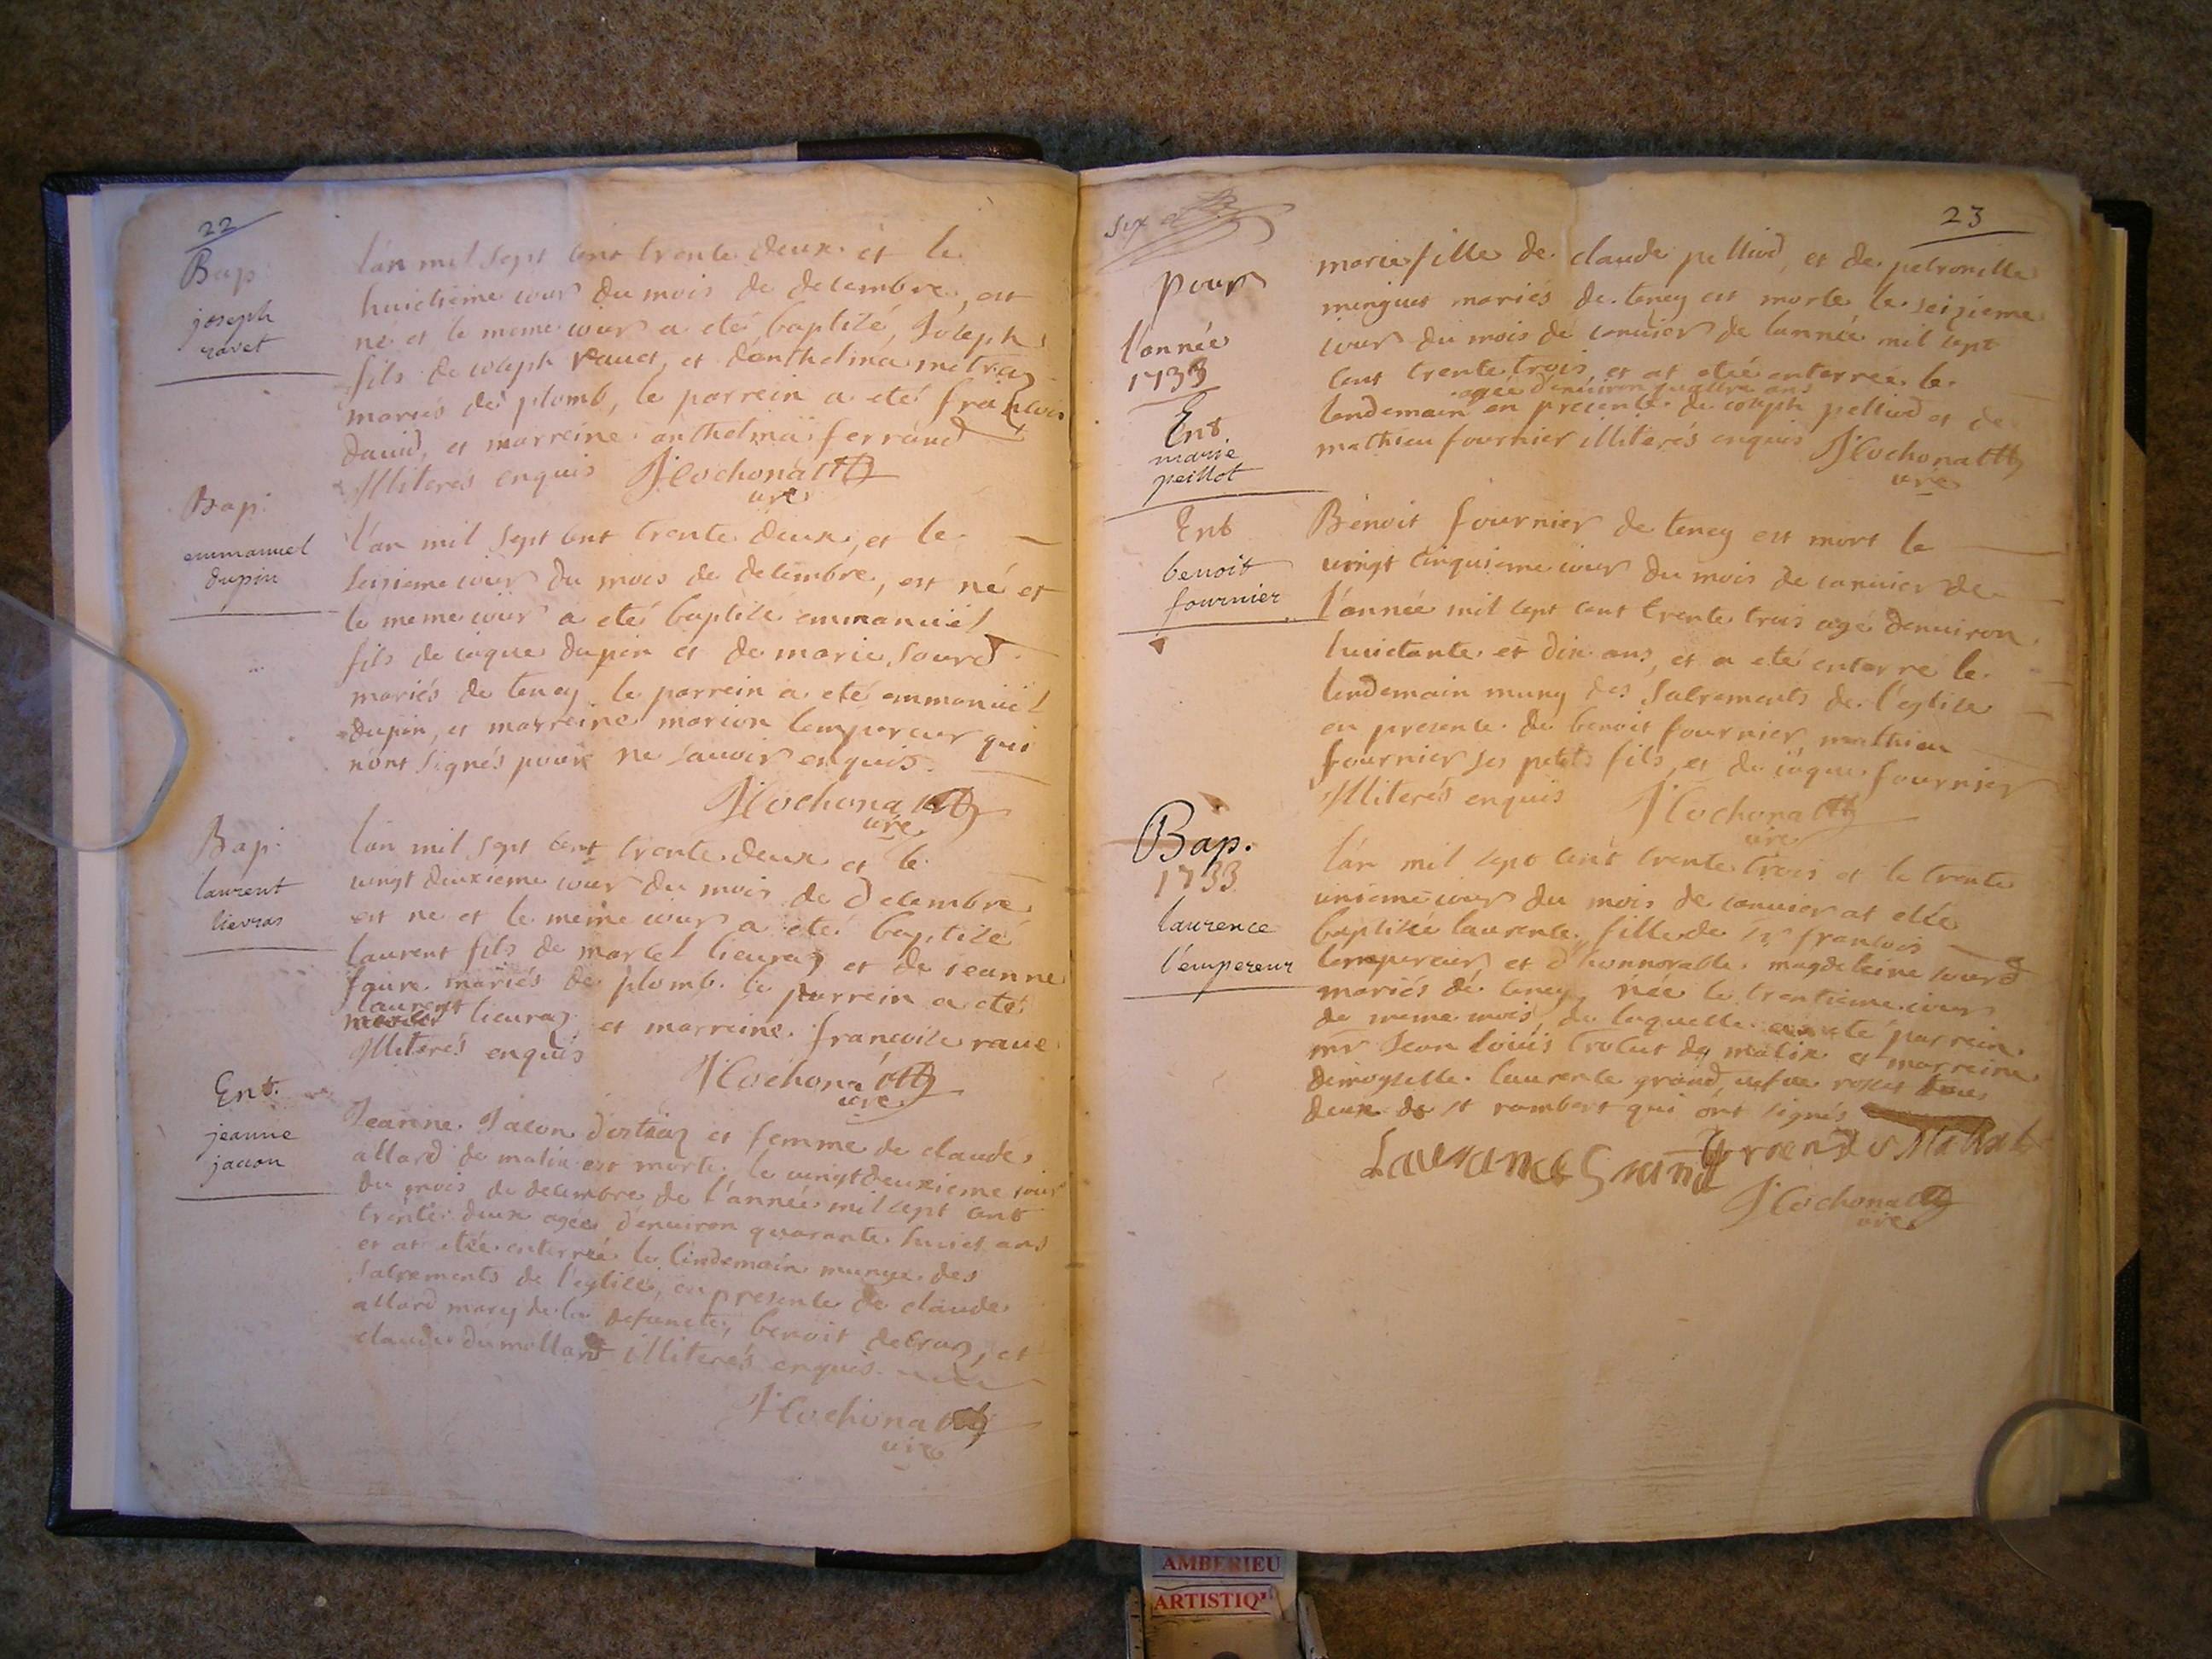 22
Bap
joseph
ravet
l'an mil sept cent trente deux et le
huictieme iour du mois de decembre, est
né et le meme iour a eté baptizé, Joseph
fils de ioseph rauet, et d'anthelma metraz
mariés de plomb, le parrein a eté francois
dauid, et marreine anthelma ferrand
Illiterés enquis JCochonatt
Curé
Bap.
emmanuel
dupin
l'an mil sept cent trente deux, et le
seizieme iour du mois de decembre, est né et
le meme iour a eté baptizé emmanuël
fils de iaque dupin et de marie sourd
mariés de teney le parrein a eté emmanuël
dupin, et marreine marion lempereur qui
n'ont signés pour ne sauoir enquis.
JCochonatt
curé
Bap.
laurent
lievras
l'an mil sept cent trente deux et le
uingt deuxieme iour du mois de decembre
est né et le meme iour a eté baptizé
laurent fils de marcel lieuraz et de ieanne
faure mariés de plomb. le parrein a eté
laurent
lieuraz, et marreine francoise raue
Illiterés enquis
JCochonatt
curé
Ent.
jeanne
jacon
Jeanne Jacon et femme de claude
allard de matix est morte le uingtdeuxieme iour
du mois de decembre de l'année mil sept cent
trente deux agée d'enuiron quarante huict ans
et at etée enterreé le lendemain munye des
sacrements de l'eglise, en presence de claude
allard mary de la defuncte, benoit et
claude dumollard illiterés enquis.
JCochonatt
curé
six
23
pour
l'année
1733
Ent
marie
peillot
marie fille de claude pelliod, et de petronille
minguet mariés de teney est morte le seizieme
iour du mois de ianuier de l'année mil sept
cent trente trois et at etée enterrée le
agée d'enuiron quattre ans
lendemain en presence de ioseph pelliod et de
mathieu fournier illiterés enquis JCochonatt
curé
Ent
benoit
fournier
Benoit fournier de teney est mort le
uingt cinquieme iour du mois de ianuier de
l'année mil sept cent trente trois agé d'enuiron
huictante et dix ans, et a eté enterré le
lendemain muny des sacrements de l'eglise
en presence de benoit fournier, mathieu
fournier ses petits fils, et de iaque fournier
Illiterés enquis JCochonatt
curé
Bap.
1733
laurence
l'empereur
l'an mil sept cent trente trois et le trente
unieme iour du mois de ianuier at etée
baptizée laurence fille de sr francois
lempereur et d'honnorable magdeleine sourd
mariés de teney, née le trentieme iour
de meme mois, de laquelle a eté parrein
mr Jean loüis trocut de matix et marreine
demoyselle laurence grand, tous
deux de st rambert qui ont signés
Laurance Grand
JCochonatt
curé
AMBERIEU
ARTISTIQU